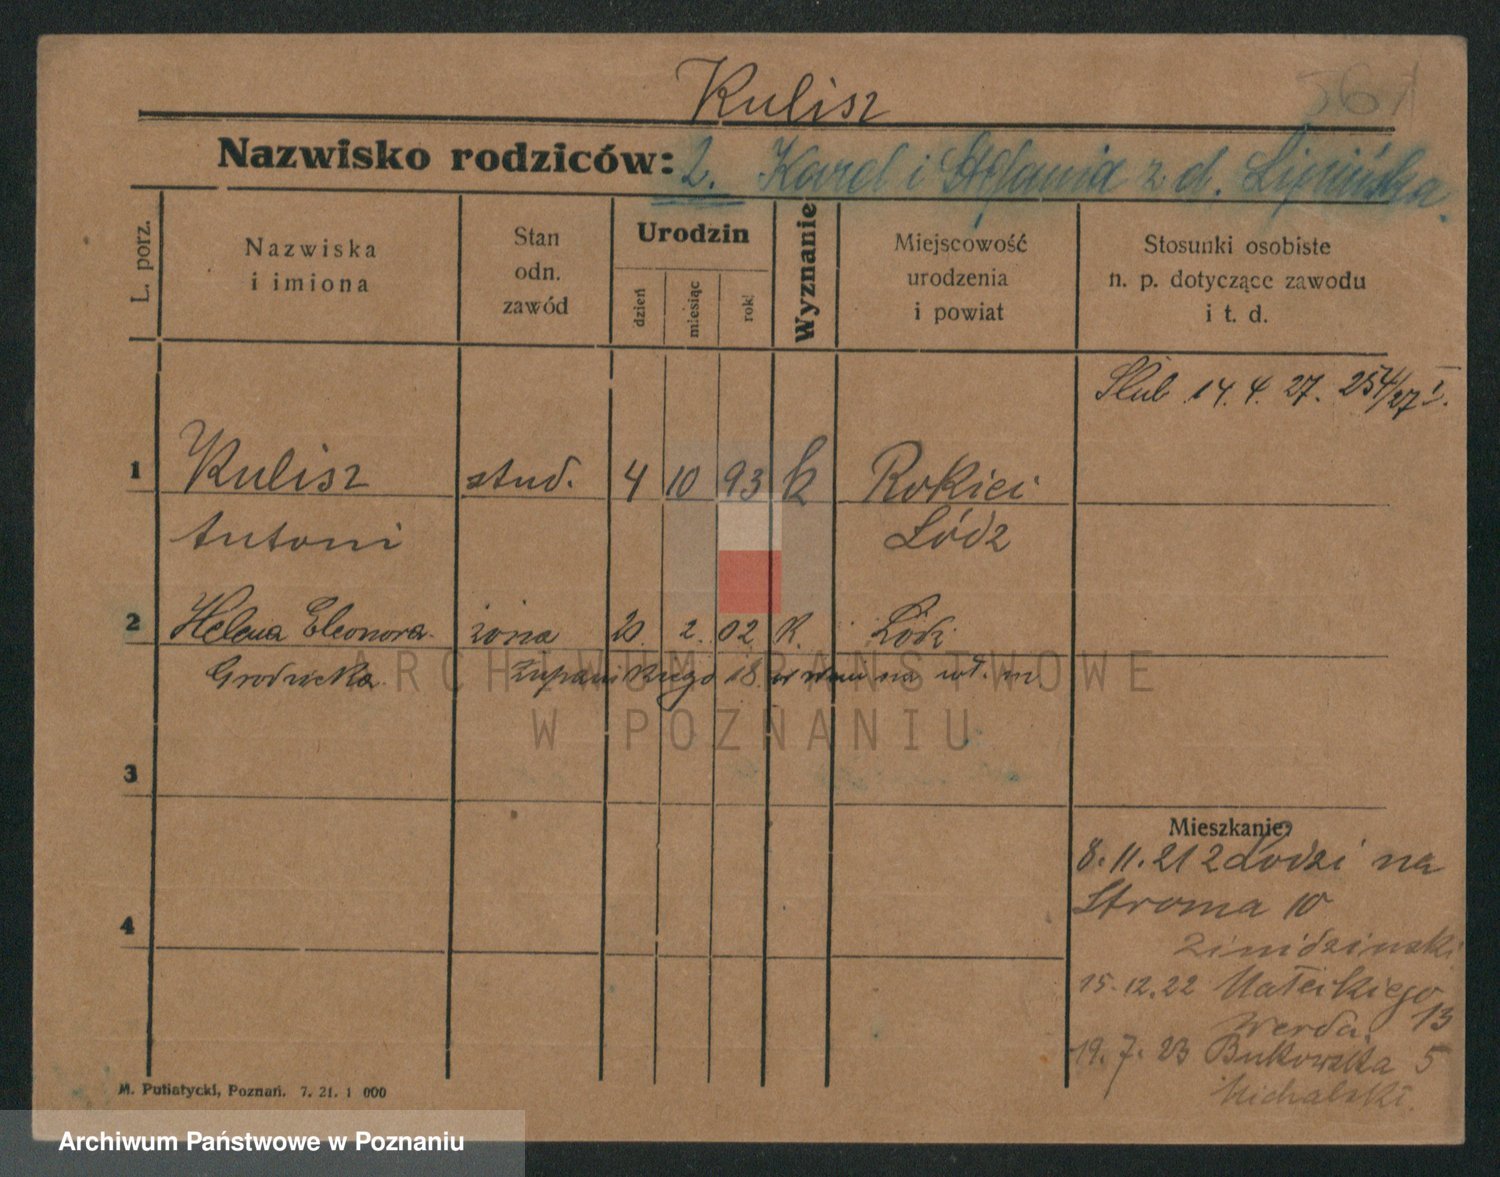 Kulisz
Nazwisko rodziców: 2. Karol i Stefania z d. Lipińska.
L. porz.
Nazwiska i imiona
Stan odn. zawód
Urodzin
dzień
miesiąc
rok
Wyznanie
Miejscowość urodzenia i powiat
Stosunki osobiste n. p. dotyczące zawodu i t. d.
Ślub 14. 4. 27. 254/27 I.
1 Kulisz stud. 4 10 93 k Rokici
Antoni Łódź
2 Helena Eleonora żona 2. 02 K. Łódź
Grodzicka 18
3
4
Mieszkanie:
8. 11. 21 z Łodzi na
Stroma 10
15. 12. 22 Matejkiego 13
19. 7. 23 Bukowska 5
Michalski.
M. Putiatycki, Poznań. 7. 21. 1 000
ARCHIWUM PAŃSTWOWE
W POZNANIU
Archiwum Państwowe w Poznaniu